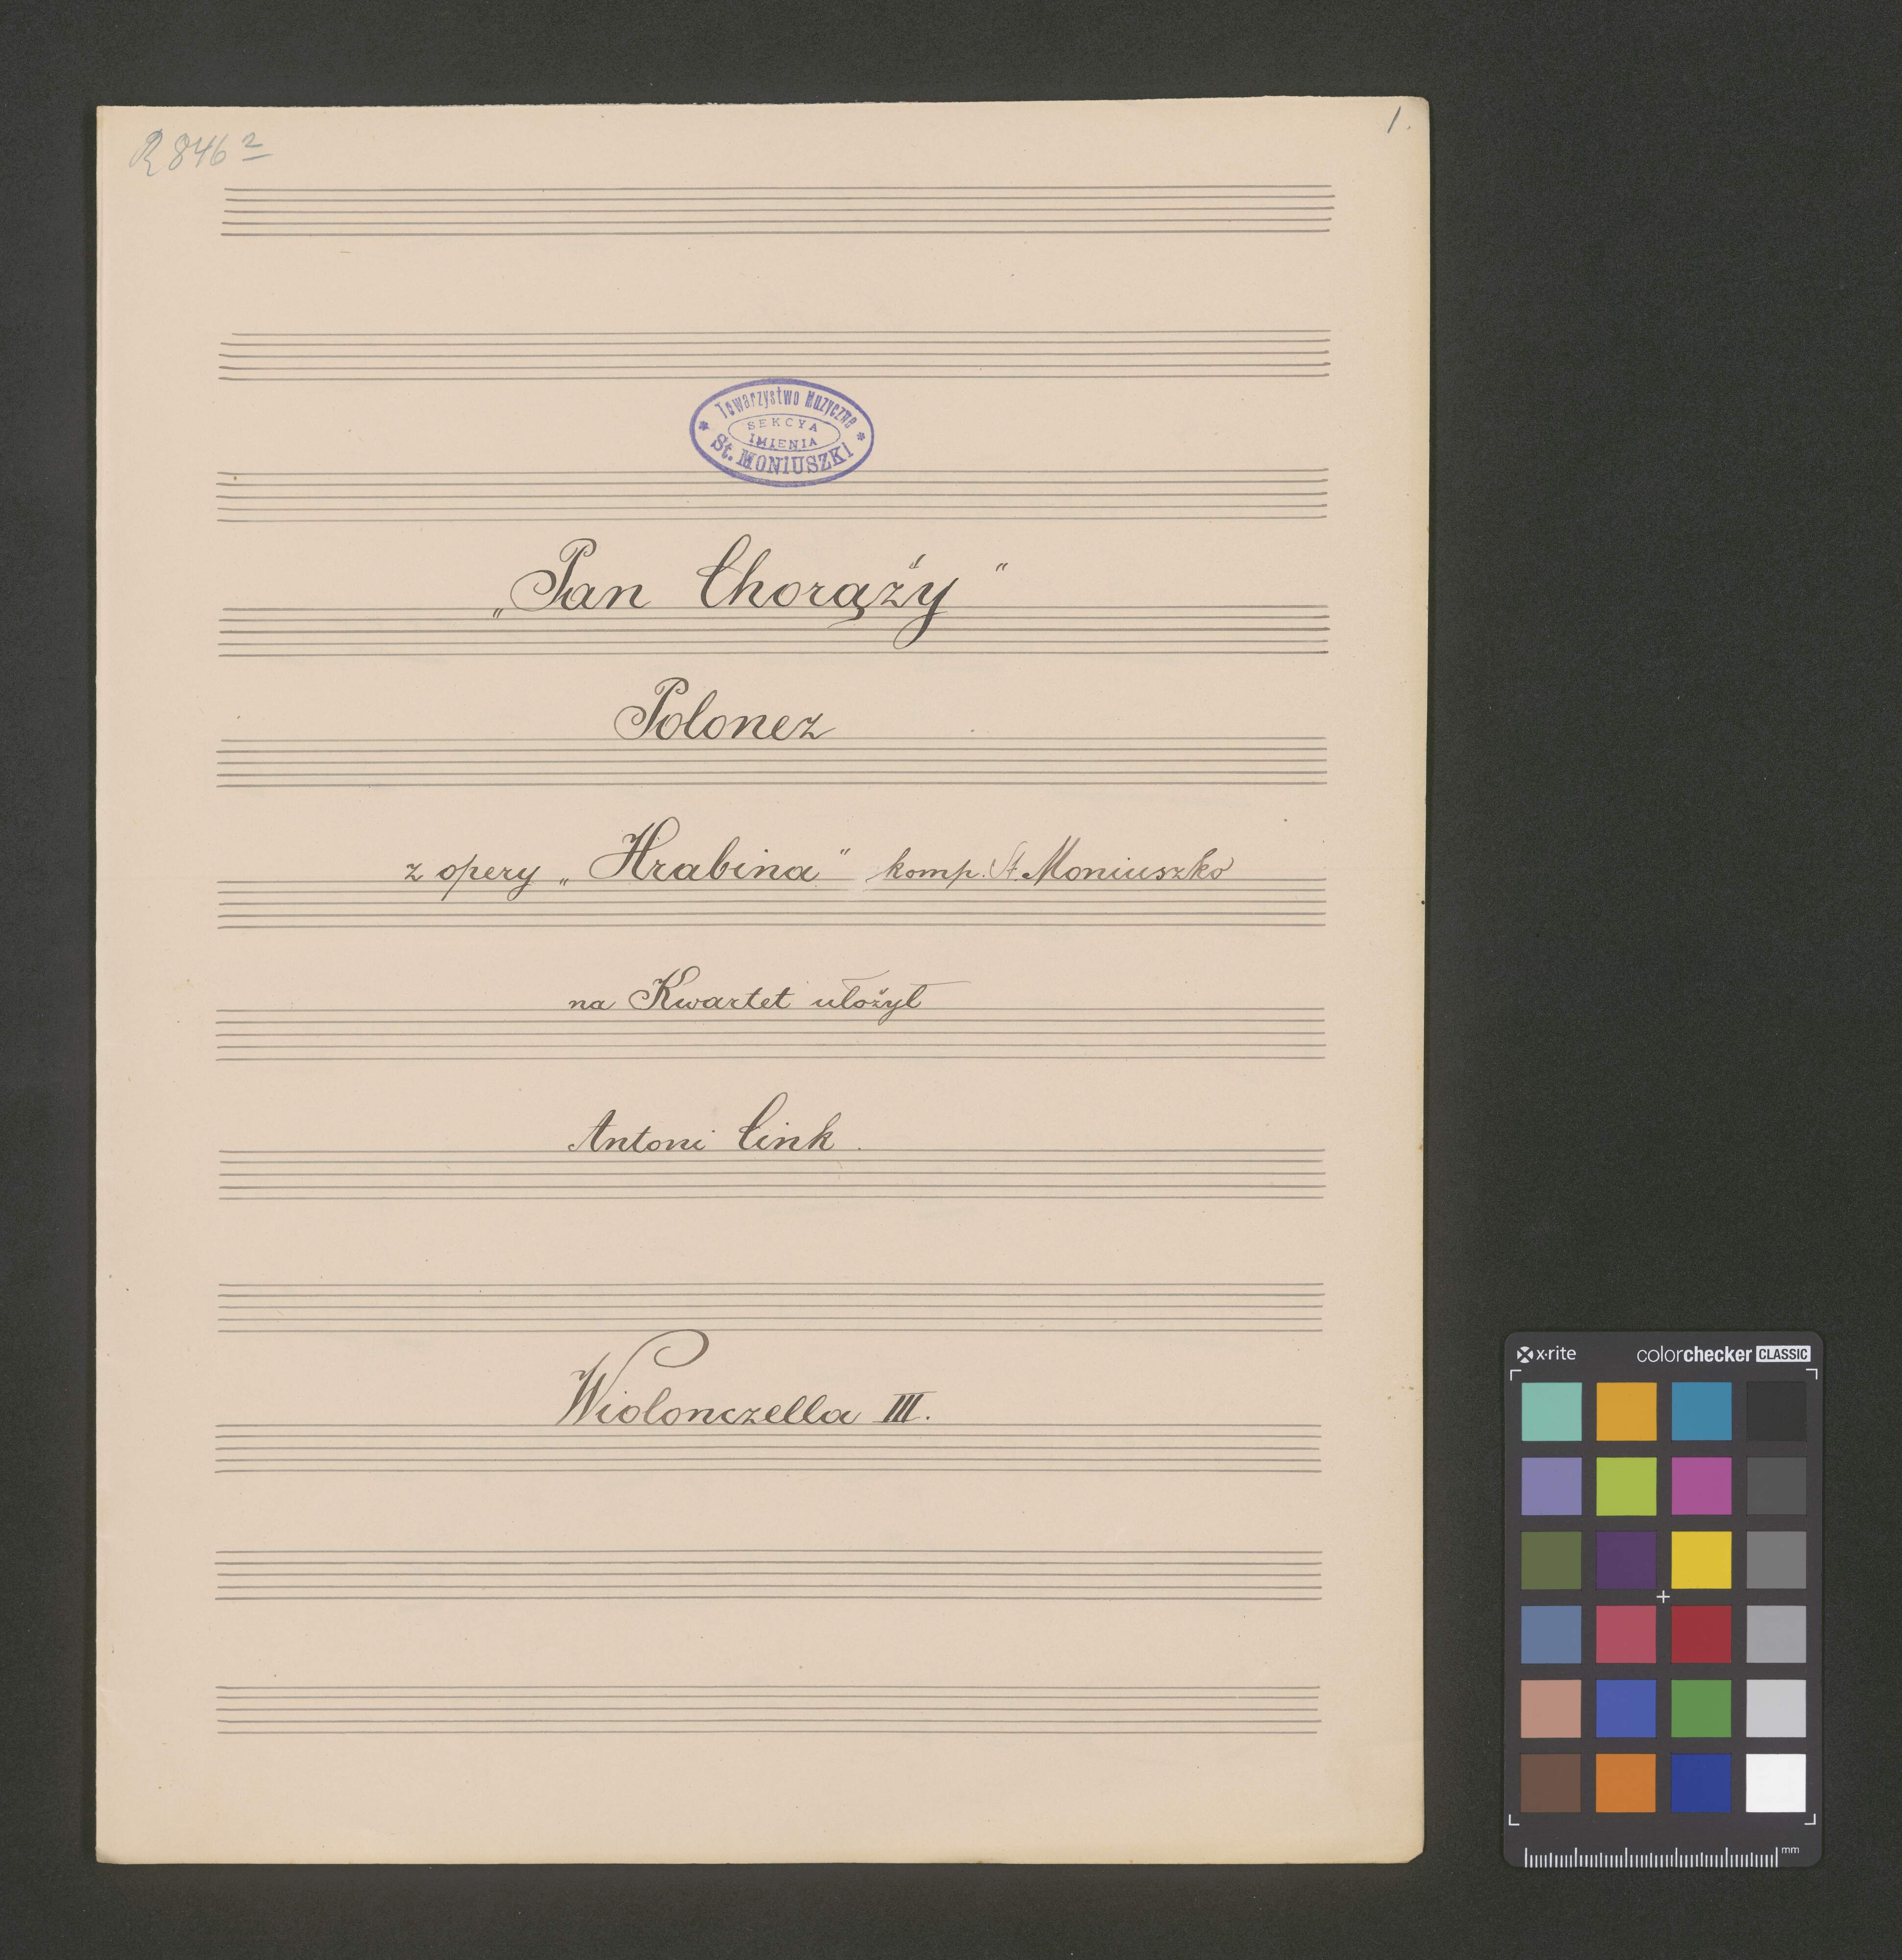 R 846 2
1.
Towarzystwo Muzyczne
SEKCYA
IMIENIA
St. MONIUSZKI
„Pan Chorąży"
Polonez
z opery „Hrabina" komp. St. Moniuszko
na Kwartet ułożył
Antoni Cink.
Wiolonczella III.
x-rite colorchecker CLASSIC
mm